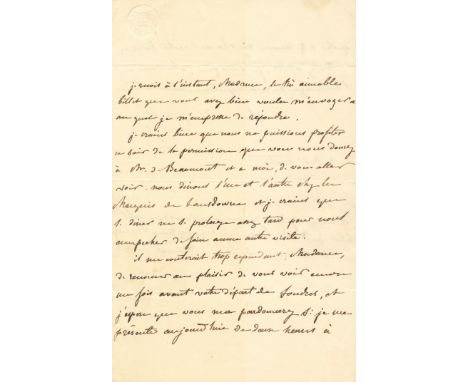 je reçois à l'instant, Madame, le très aimable
billet que vous avez bien voulu m'envoyer et
auquel je m'empresse de répondre.
je crains bien que nous ne puissions profiter
ce soir de la permission que vous nous donnez
à Mr. de Beaumont et à moi, de vous aller
voir. nous dinons l'un et l'autre chez le
Marquis de Lansdowne et je crains que
le diner ne se prolonge assez tard pour nous
empêcher de faire aucune autre visite.
il me coûterait trop cependant, Madame,
de renoncer au plaisir de vous voir encore
une fois avant votre départ de Londres, et
j'espère que vous me pardonnerez si je me
présente aujourd'hui de deux heures à